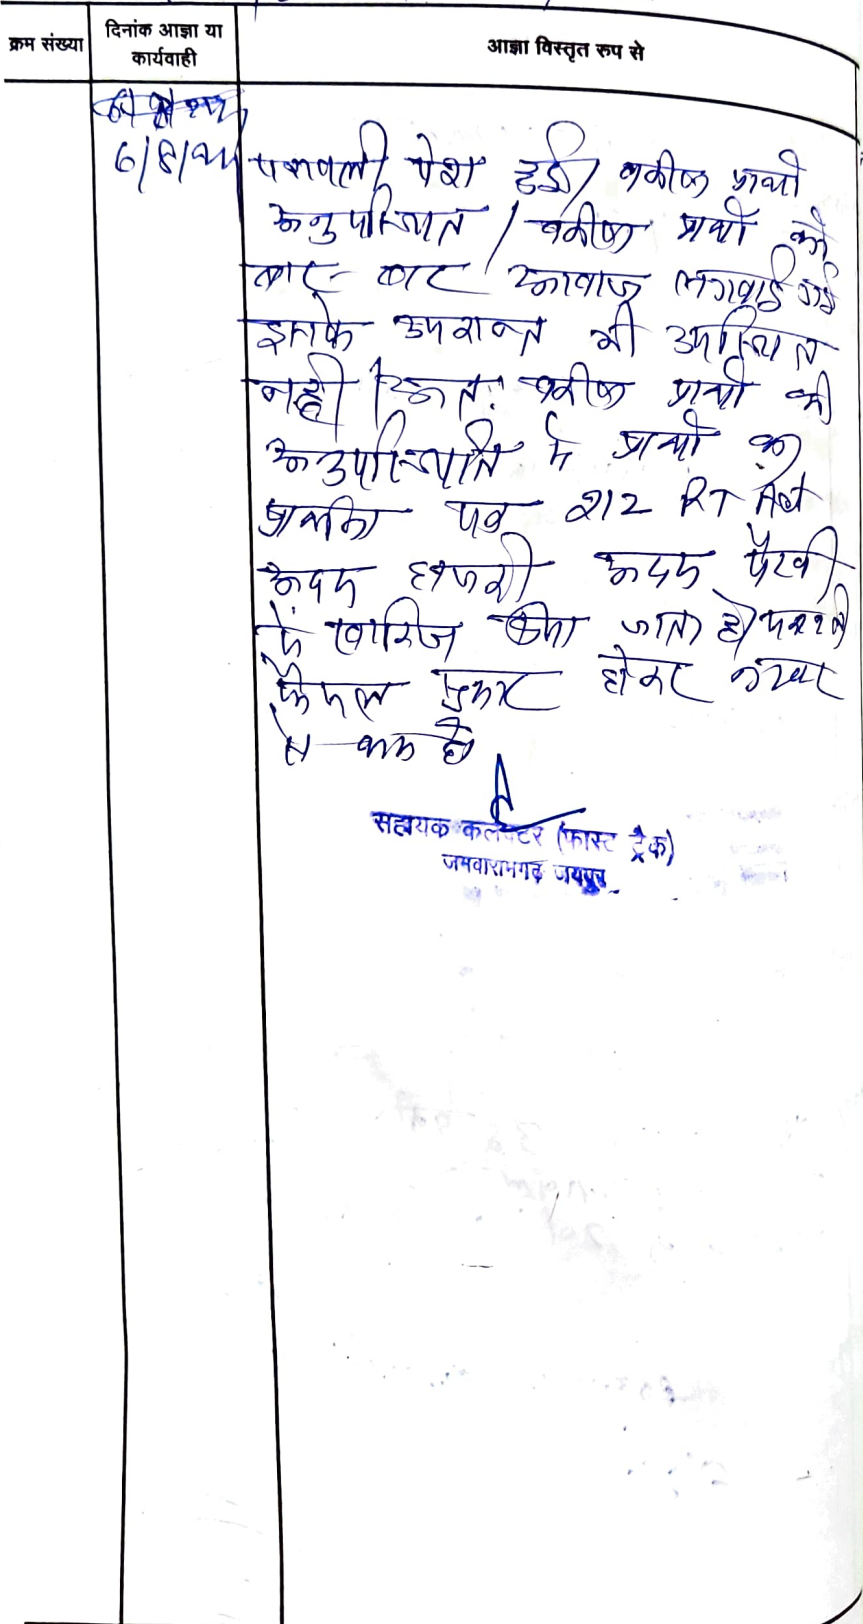 क्रम संख्या
दिनांक आज्ञा या
कार्यवाही
आज्ञा विस्तृत रूप से
6/8/24
पत्रावली पेश हुई। वकील प्रार्थी
अनुपस्थित। वकील प्रार्थी को
बार-बार आवाज लगवाई गई
इसके उपरान्त भी उपस्थित
नहीं। अतः वकील प्रार्थी की
अनुपस्थिति में प्रार्थी का
प्रार्थना पत्र 212 RT
अदम हाजरी अदम पैरवी
में खारिज किया जाता है। पत्रावली
फैसल शुमार होकर नम्बर
से कम हो
सहायक कलेक्टर (फास्ट ट्रैक)
जमवारामगढ़ जयपुर